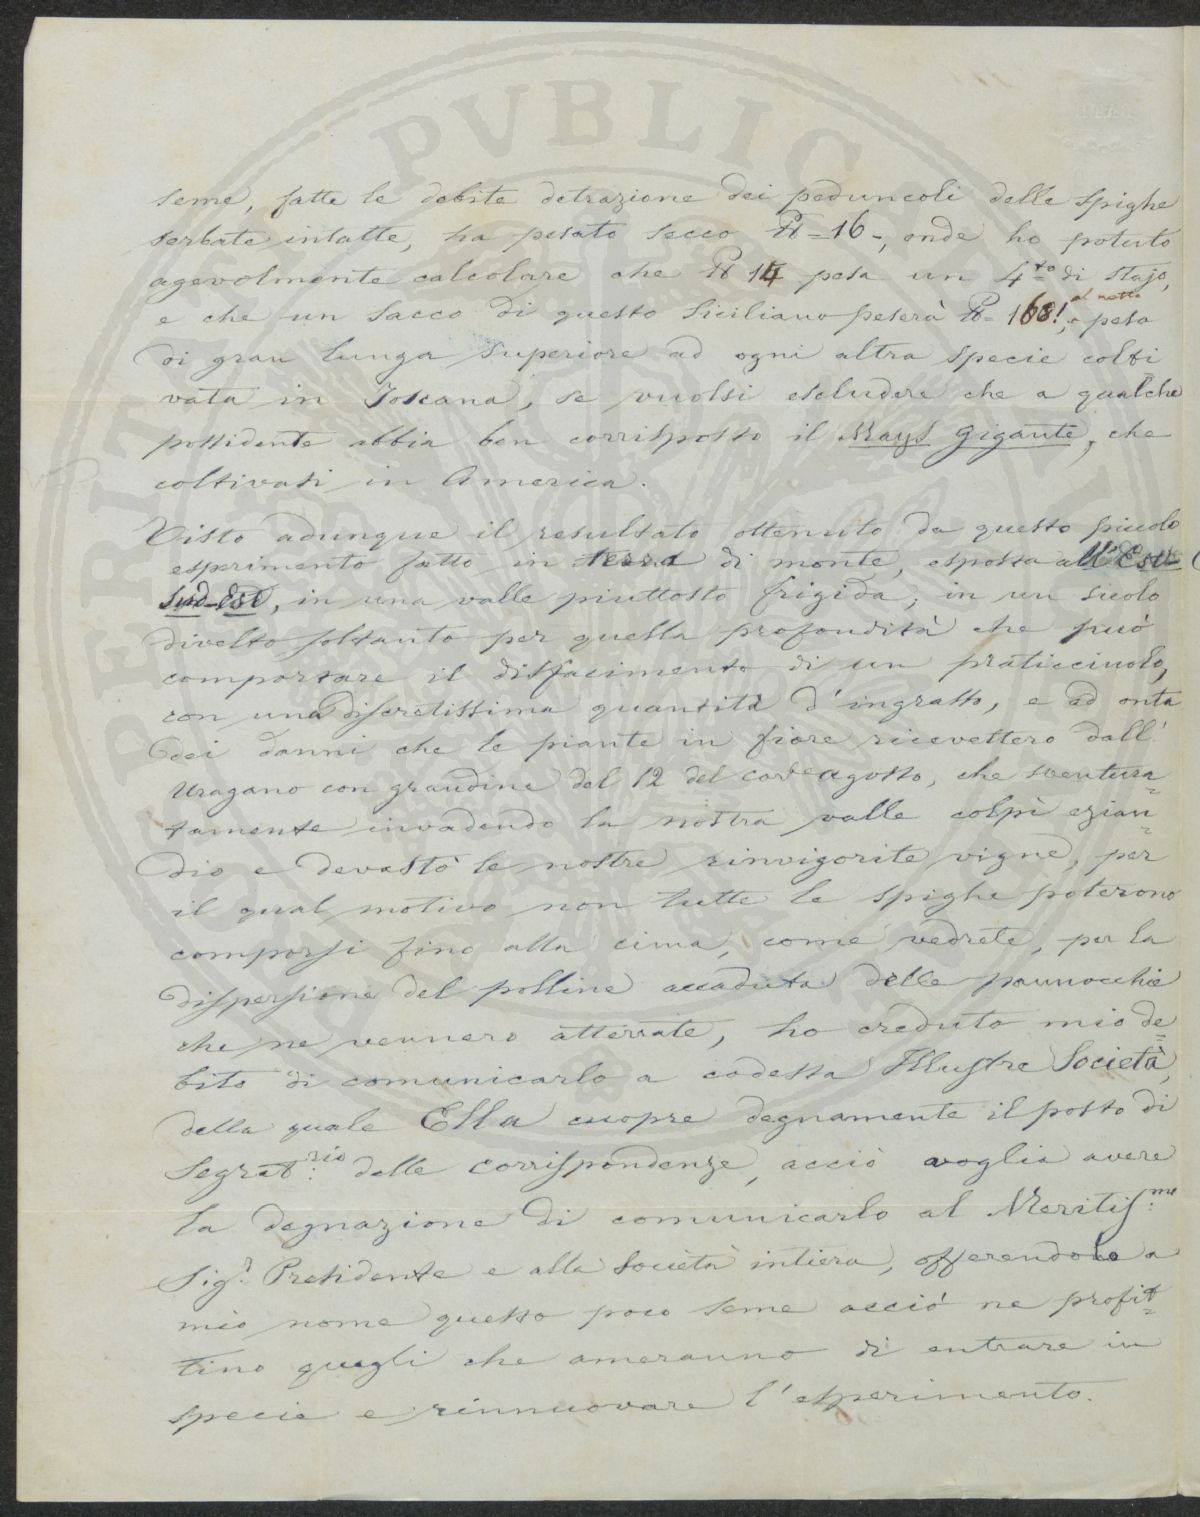 seme, fatte le debite detrazione dei peduncoli delle spighe
serbate intatte, ha pesato secco ℔ = 16 =, onde ho potuto
agevolmente calcolare che ℔ 14 pesa un 4.to di stajo,
e che un sacco di questo Siciliano peserà ℔ = 168!, al netto peso
di gran lunga superiore ad ogni altra specie colti
vata in Toscana, se vuolsi escludere che a qualche
possidente abbia ben corrisposto il Mays Gigante, che
coltivasi in America.
Visto adunque il resultato ottenuto da questo piccolo
esperimento fatto in terra di monte, esposta all'Est-
Sud-Est, in una valle piuttosto frigida; in un suolo
divelto soltanto per quella profondità che può
comportare il disfacimento di un praticciuolo,
con una discretissima quantità d'ingrasso, e ad onta
dei danni che le piante in fiore ricevettero dall'
Uragano con grandine del 12 del cad.e agosto, che sventura=
tamente invadendo la nostra valle colpì ezian=
dio e devastò le nostre rinvigorite vigne, per
il qual motivo non tutte le spighe poterono
comporsi fino alla cima, come vedrete, per la
dispersione del polline accaduta delle pannocchie
che ne vennero atterrate, ho creduto mio de=
bito di comunicarlo a codesta Illustre Società,
della quale Ella cuopre degnamente il posto di
Segret.rio delle corrispondenze, acciò voglia avere
la degnazione di comunicarlo al Meritis.mo
Sig.r Presidente e alla Società intiera, offerendole a
mio nome questo poco seme acciò ne profit=
tino quegli che ameranno di entrare in
specie e rinnuovare l'esperimento.